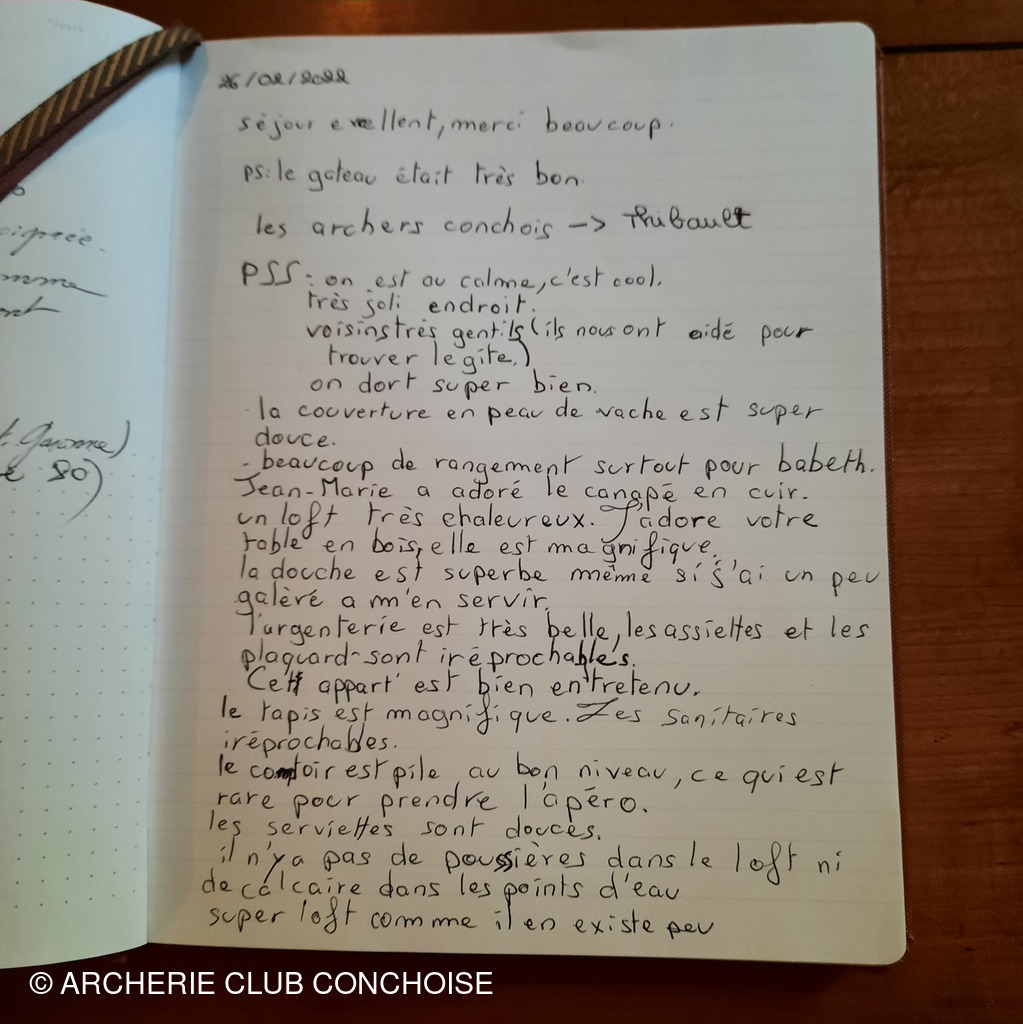 cipée.
mme
t. Garonne)
e 80)
26/02/2022
séjour exellent, merci beaucoup.
ps: le gateau était très bon.
les archers conchois -> Thibault
PSS: on est au calme, c'est cool.
très joli endroit.
voisins très gentils (ils nous ont aidé pour
trouver le gîte.)
on dort super bien.
la couverture en peau de vache est super
douce.
- beaucoup de rangement surtout pour babeth.
Jean-Marie a adoré le canapé en cuir.
un loft très chaleureux. J'adore votre
table en bois, elle est magnifique.
la douche est superbe même si j'ai un peu
galéré a m'en servir.
l'argenterie est très belle, les assiettes et les
plaquard sont iréprochables.
Cett appart' est bien entretenu.
le tapis est magnifique. Les sanitaires
iréprochables.
le comtoir est pile au bon niveau, ce qui est
rare pour prendre l'apéro.
les serviettes sont douces.
il n'y a pas de poussières dans le loft ni
de calcaire dans les points d'eau
super loft comme il en existe peu
© ARCHERIE CLUB CONCHOISE